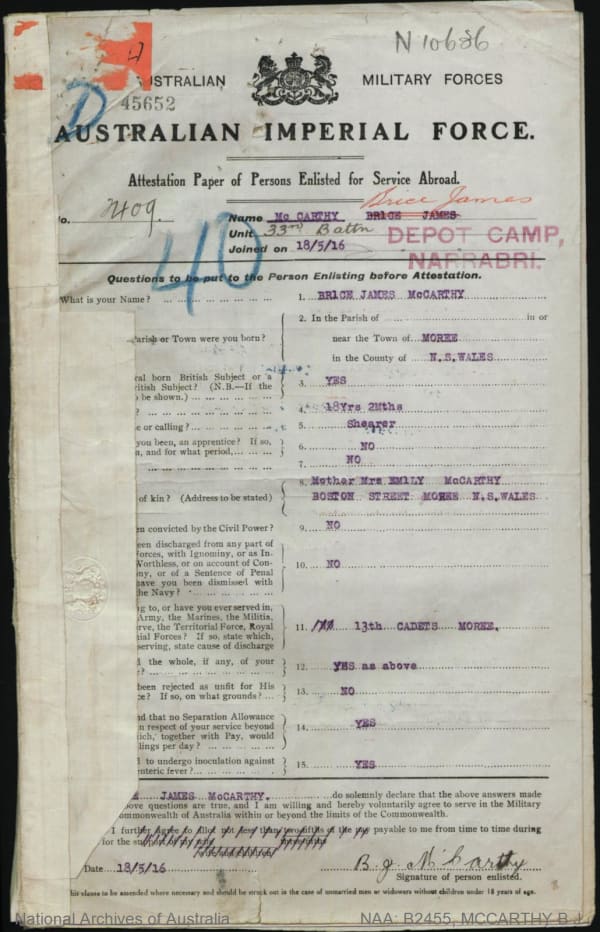 N 10636
AUSTRALIAN MILITARY FORCES
45652
AUSTRALIAN IMPERIAL FORCE.
Attestation Paper of Persons Enlisted for Service Abroad.
No. 2409. Name Mc CARTHY BRICE JAMES Brice James
Unit 33rd Battn
Joined on 18/5/16
DEPOT CAMP,
NARRABRI.
40
Questions to be put to the Person Enlisting before Attestation.
What is your Name? 1. BRICE JAMES McCARTHY
2. In the Parish of in or
Parish or Town were you born? near the Town of MOREE
in the County of N.S.WALES
ral born British Subject or a
ritish Subject? (N.B.—If the 3. YES
be shown.)
? 4. 18Yrs 2Mths
e or calling? 5. Shearer
you been, an apprentice? If so, 6. NO
, and for what period, 7. NO
8. Mother Mrs EMILY McCARTHY
of kin? (Address to be stated) BOSTON STREET MOREE N.S.WALES
en convicted by the Civil Power? 9. NO
een discharged from any part of
orces, with Ignominy, or as In-
Worthless, or on account of Con-
ny, or of a Sentence of Penal 10. NO
ave you been dismissed with
the Navy?
g to, or have you ever served in,
Army, the Marines, the Militia,
rve, the Territorial Force, Royal
ial Forces? If so, state which, 11. 13th CADETS MOREE,
serving, state cause of discharge
d the whole, if any, of your
? 12. YES as above
been rejected as unfit for His
ce? If so, on what grounds? 13. NO
nd that no Separation Allowance
n respect of your service beyond
ich, together with Pay, would 14. YES
lings per day?
d to undergo inoculation against
enteric fever? 15. YES
E JAMES McCARTHY. do solemnly declare that the above answers made
bove questions are true, and I am willing and hereby voluntarily agree to serve in the Military
ommonwealth of Australia within or beyond the limits of the Commonwealth.
I further agree to allot not less than two-fifths of the pay payable to me from time to time during
for the
Date 18/5/16 B. J. McCarthy
Signature of person enlisted.
his clause to be amended where necessary and should be struck out in the case of unmarried men or widowers without children under 18 years of age.
National Archives of Australia NAA: B2455, MCCARTHY B J